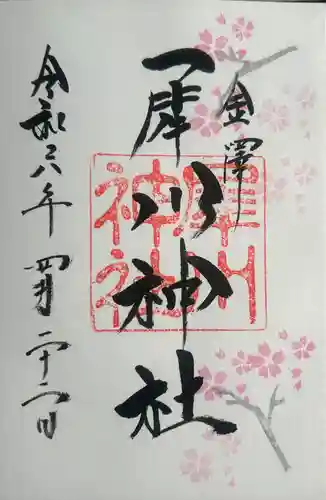 金澤
犀川神社
犀川
神社
令和六年 四月二十二日